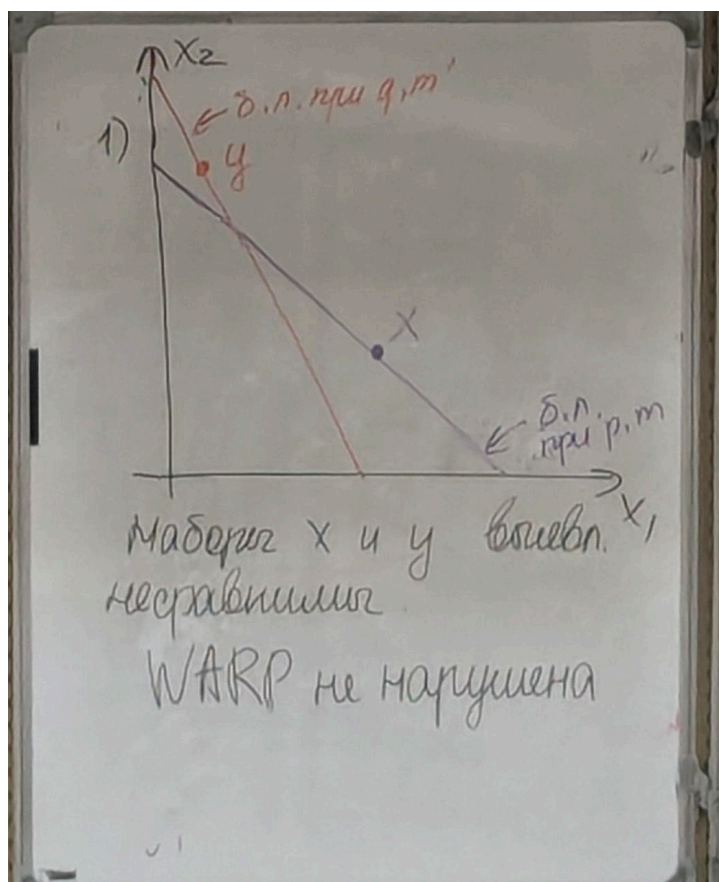 x₂
← б.л. при q, m'
1)
y
x
← б.л.
при p, m
x₁
Наборы x и y выявл.
несравнимы
WARP не нарушена